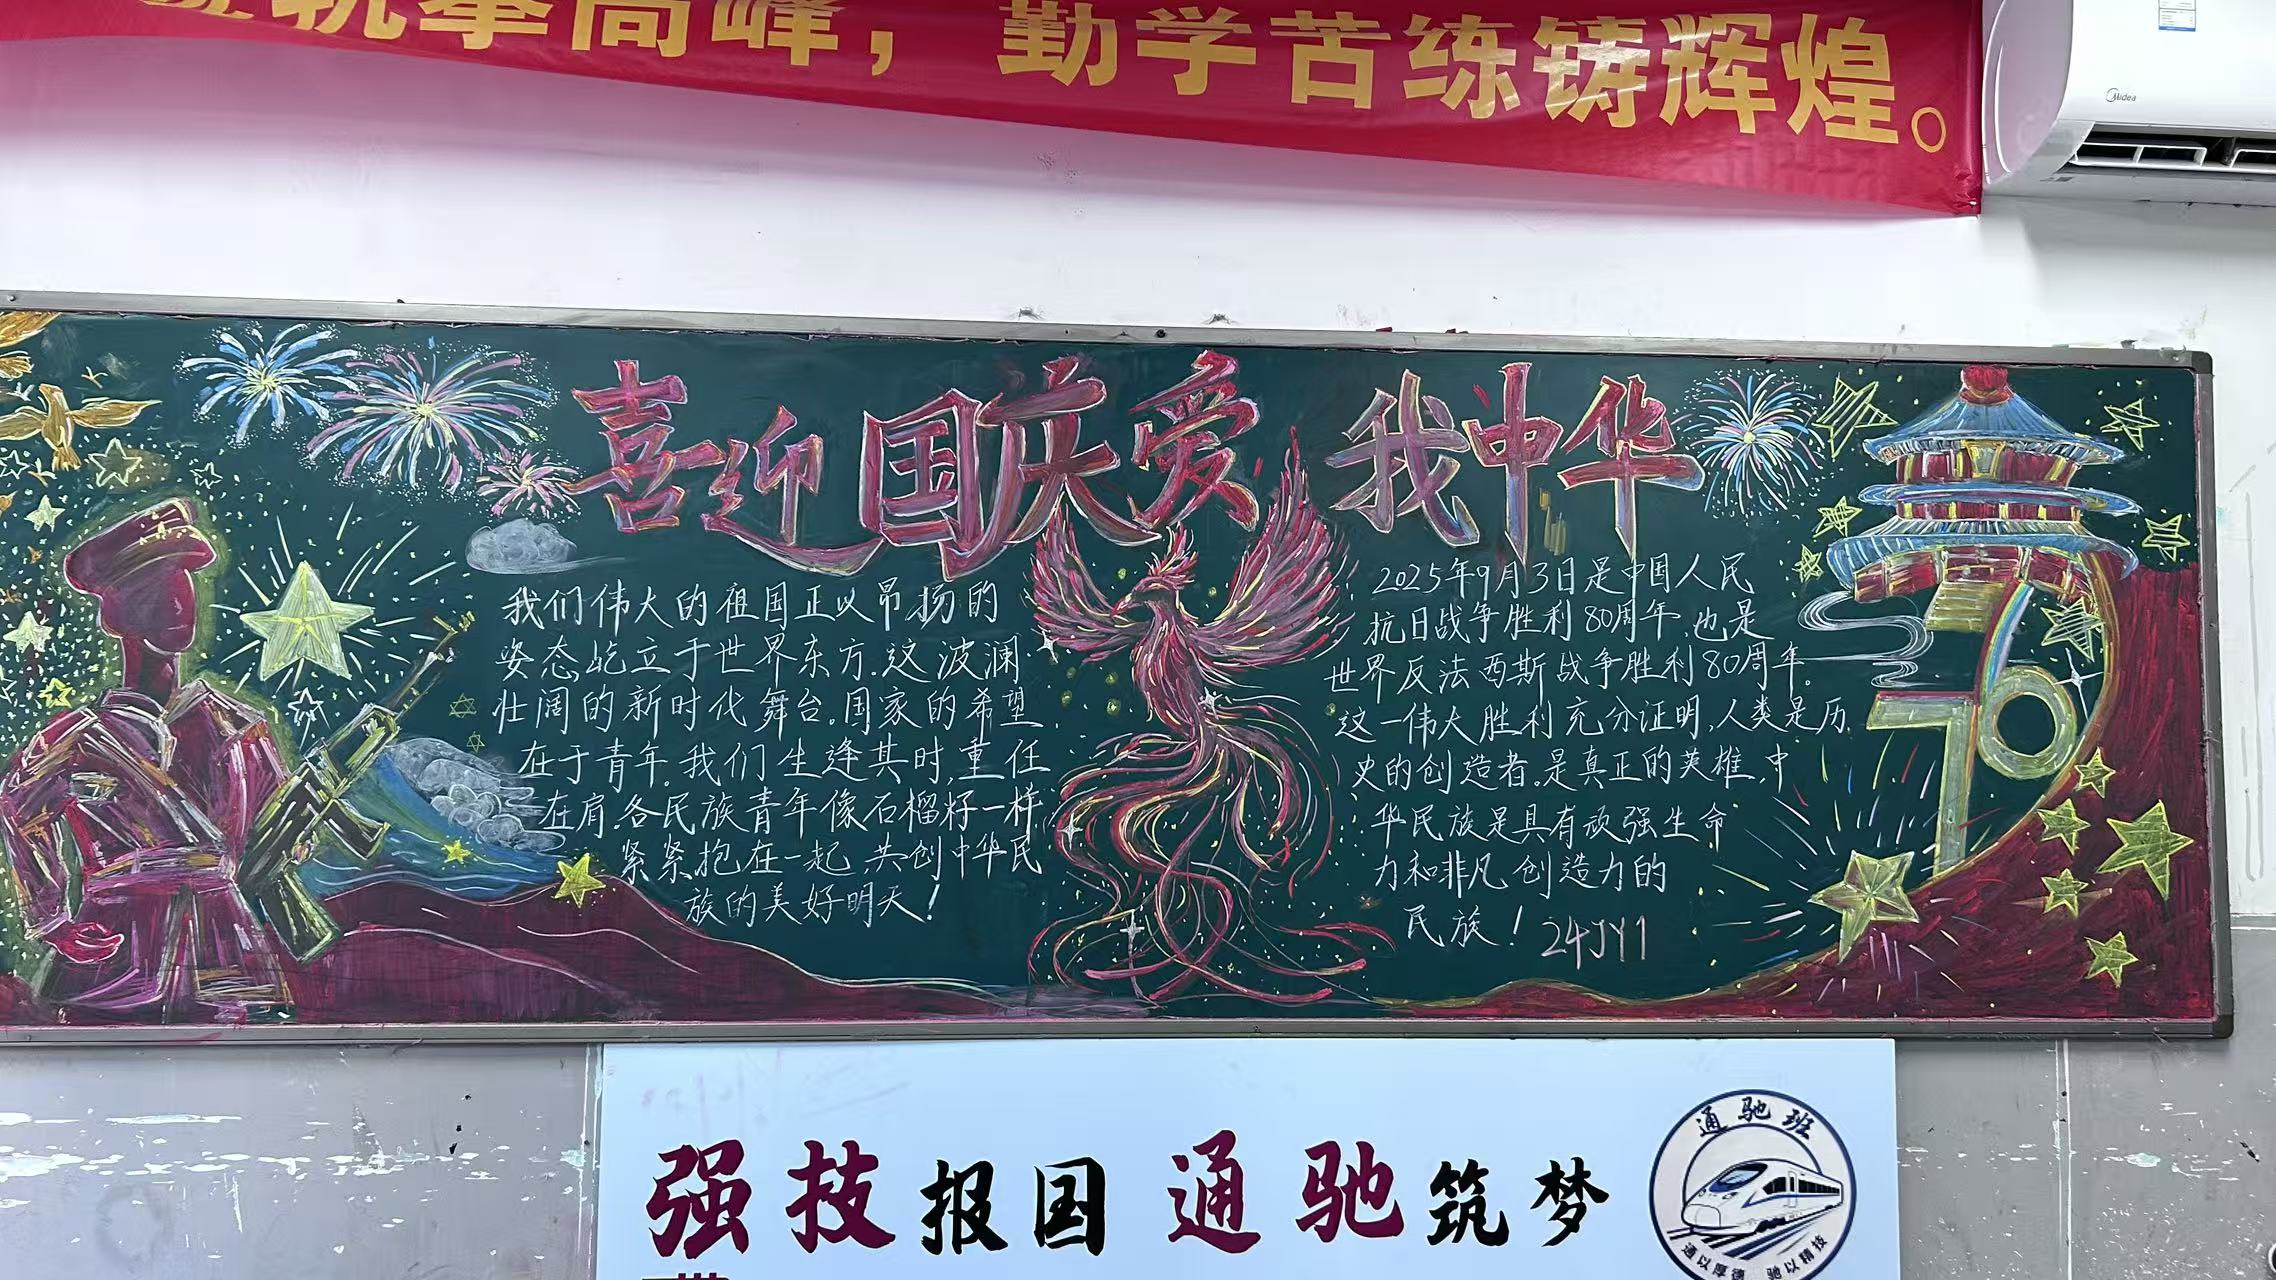 执攀高峰，勤学苦练铸辉煌。
Midea
喜迎国庆爱我中华
我们伟大的祖国正以昂扬的
姿态屹立于世界东方.这波澜
壮阔的新时代舞台。国家的希望
在于青年。我们生逢其时,重任
在肩.各民族青年像石榴籽一样
紧紧抱在一起,共创中华民
族的美好明天!
2025年9月3日是中国人民
抗日战争胜利80周年,也是
世界反法西斯战争胜利80周年。
这一伟大胜利充分证明,人类是历
史的创造者。是真正的英雄,中
华民族是具有顽强生命
力和非凡创造力的
民族! 24JY1
70
强技报国 通驰筑梦
通驰班
通以厚德 驰以精技